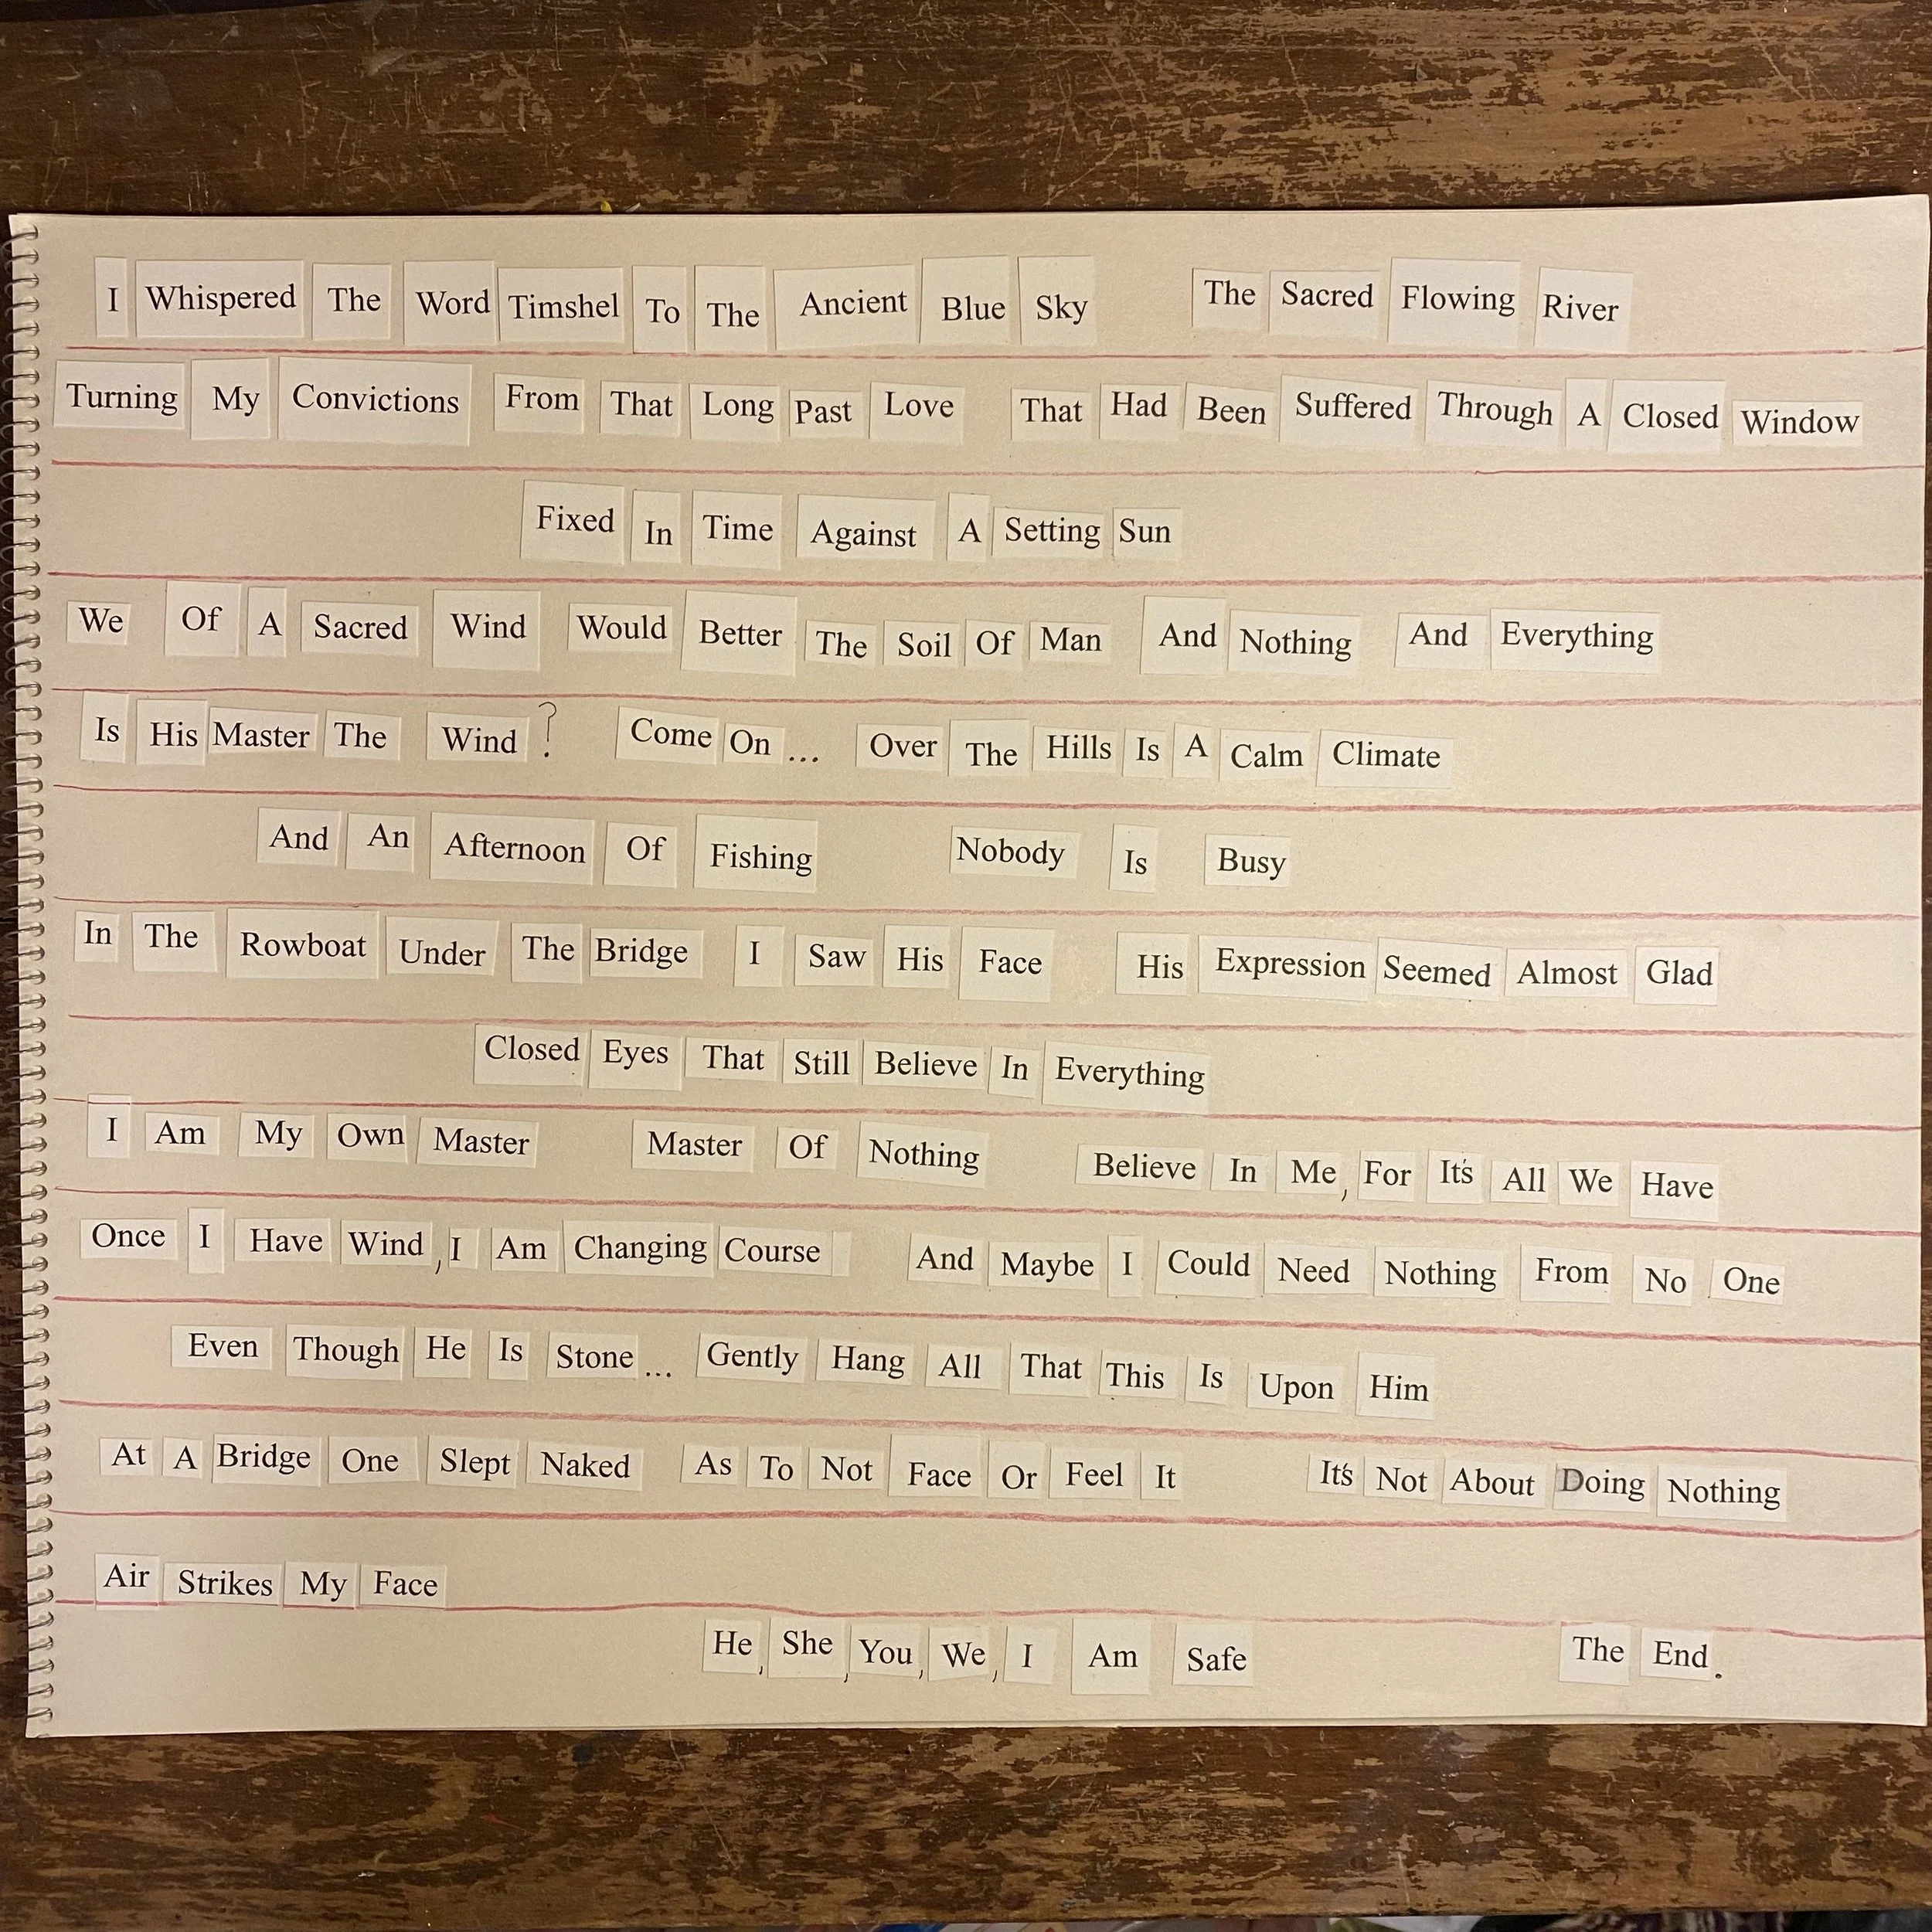 I Whispered The Word Timshel To The Ancient Blue Sky The Sacred Flowing River
Turning My Convictions From That Long Past Love That Had Been Suffered Through A Closed Window
Fixed In Time Against A Setting Sun
We Of A Sacred Wind Would Better The Soil Of Man And Nothing And Everything
Is His Master The Wind? Come On... Over The Hills Is A Calm Climate
And An Afternoon Of Fishing Nobody Is Busy
In The Rowboat Under The Bridge I Saw His Face His Expression Seemed Almost Glad
Closed Eyes That Still Believe In Everything
I Am My Own Master Master Of Nothing Believe In Me, For It's All We Have
Once I Have Wind, I Am Changing Course And Maybe I Could Need Nothing From No One
Even Though He Is Stone... Gently Hang All That This Is Upon Him
At A Bridge One Slept Naked As To Not Face Or Feel It It's Not About Doing Nothing
Air Strikes My Face
He, She, You, We, I Am Safe The End.